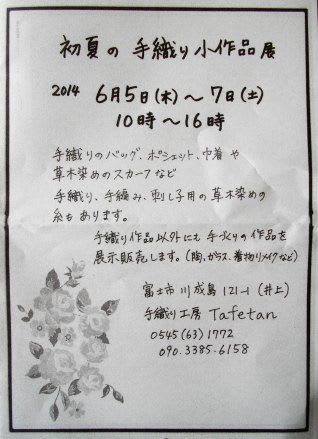 初夏の 手織り小作品展
2014 6月5日(木)〜7日(土)
10時〜16時
手織りのバッグ、ポシェット、巾着や
草木染めのスカーフなど
手織り、手編み、刺し子用の草木染めの
糸もあります。
手織り作品以外にも手づくりの作品を
展示販売します。(陶、ガラス、着物リメイクなど)
富士市川成島121-1(井上)
手織り工房 Tafetan
0545(63)1772
090.3385-6158